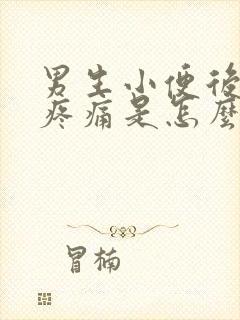 男生小便後
疼痛是怎麼
冒楠